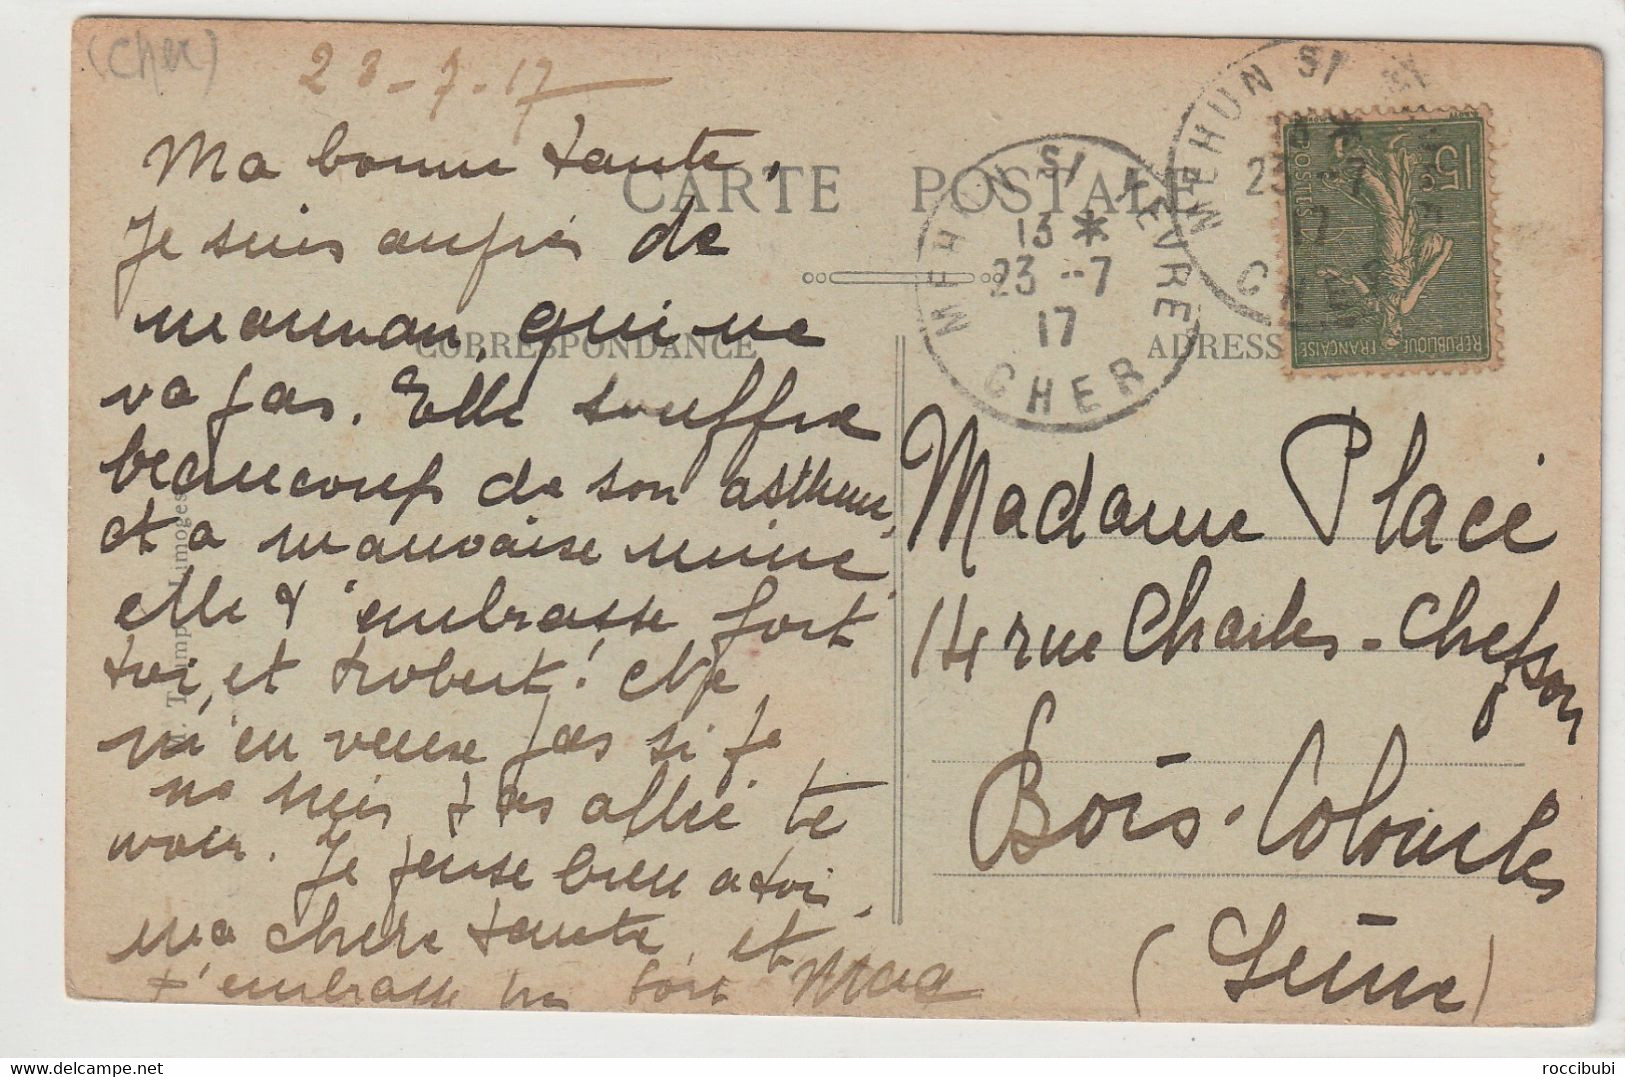 (Cher)
23-7-17
Ma bonne tante,
Je suis auprès de
maman, qui ne
va pas. Elle souffre
beaucoup de son asthme,
et a mauvaise mine
elle t'embrasse fort
toi, et Robert! Ne
m'en veux pas si je
ne suis pas allé te
voir. Je pense bien a toi
ma chère tante et
t'embrasse bien fort
CARTE POSTALE
CORRESPONDANCE
ADRESS
MEHUN S/ YEVRE
13 *
23 -7
17
CHER
MEHUN S/
23 -7
CHER
15c
POSTES
REPUBLIQUE FRANÇAISE
Madame Place
14 rue Charles-Chefson
Bois-Colombes
(Seine)
Limoges
roccibubi